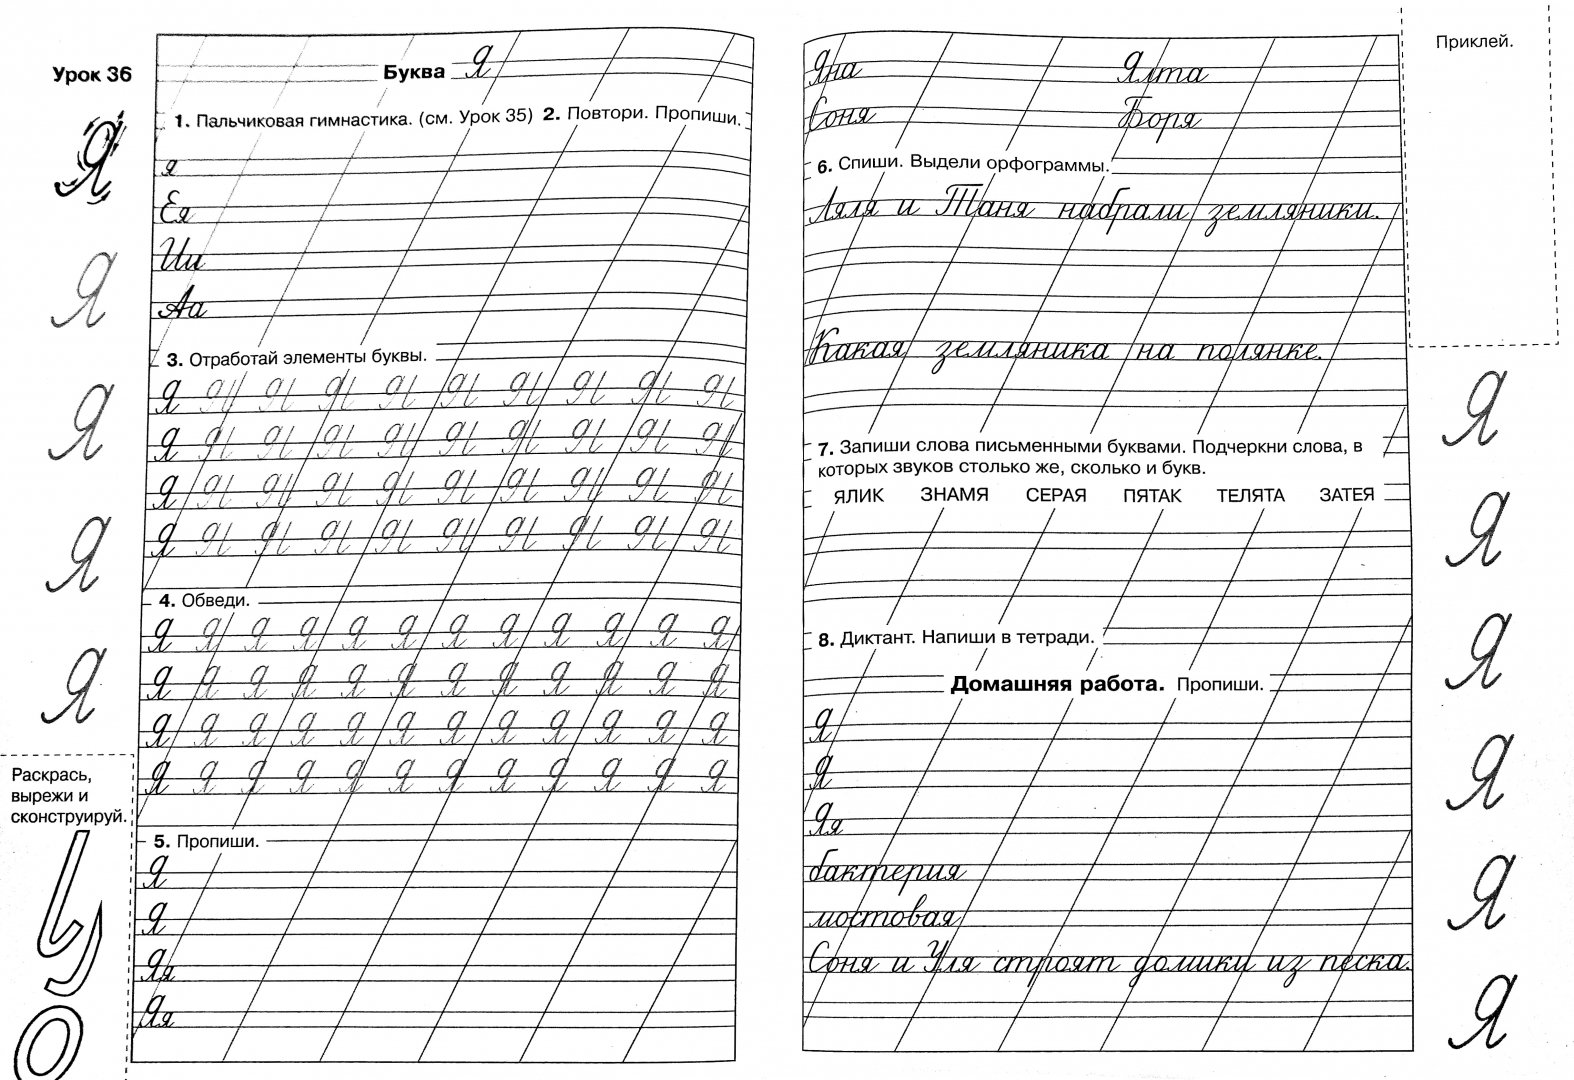 Урок 36
Буква Я
1. Пальчиковая гимнастика. (см. Урок 35) 2. Повтори. Пропиши.
я
Ея
Ии
Аа
3. Отработай элементы буквы.
Я
Я
Я
Я
4. Обведи.
Я Я Я Я Я Я Я Я Я Я Я Я
Я Я Я Я Я Я Я Я Я Я Я Я
Я Я Я Я Я Я Я Я Я Я Я Я
Я Я Я Я Я Я Я Я Я Я Я Я
5. Пропиши.
Я
Я
Яя
Яя
Я
Я
Я
Я
Я
Раскрась,
вырежи и
сконструируй.
Яна Ялта
Соня Боря
6. Спиши. Выдели орфограммы.
Ляля и Таня набрали земляники.
Какая земляника на полянке.
7. Запиши слова письменными буквами. Подчеркни слова, в
которых звуков столько же, сколько и букв.
ЯЛИК ЗНАМЯ СЕРАЯ ПЯТАК ТЕЛЯТА ЗАТЕЯ
8. Диктант. Напиши в тетради.
Домашняя работа. Пропиши.
Я
Я
Яя
бактерия
мостовая
Соня и Уля строят домики из песка.
Приклей.
Я
Я
Я
Я
Я
Я